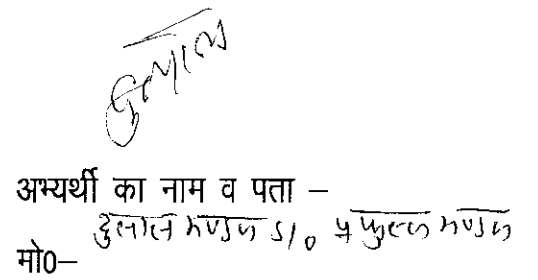 दुलाल
अभ्यर्थी का नाम व पता –
दुलाल मण्डल S/o प्रफुल्ल मण्डल
मो0–